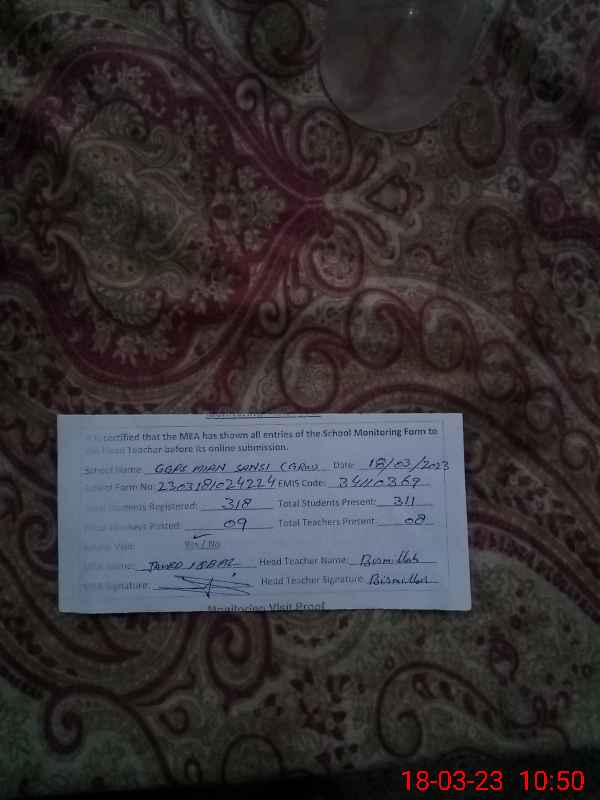 It is certified that the MEA has shown all entries of the School Monitoring Form to
the Head Teacher before its online submission.
School Name GGPS MIAN SANSI (GRW) Date: 18/03/2023
School Form No: 2303181024224 EMIS Code: 34110369
Total Students Registered: 318 Total Students Present: 311
Posted: 09 Total Teachers Present 08
Visit: Yes / No
MEA Name: JAVED IQBAL Head Teacher Name: Bismillah
MEA Signature: Head Teacher Signature Bismillah
Monitoring Visit Proof
18-03-23 10:50